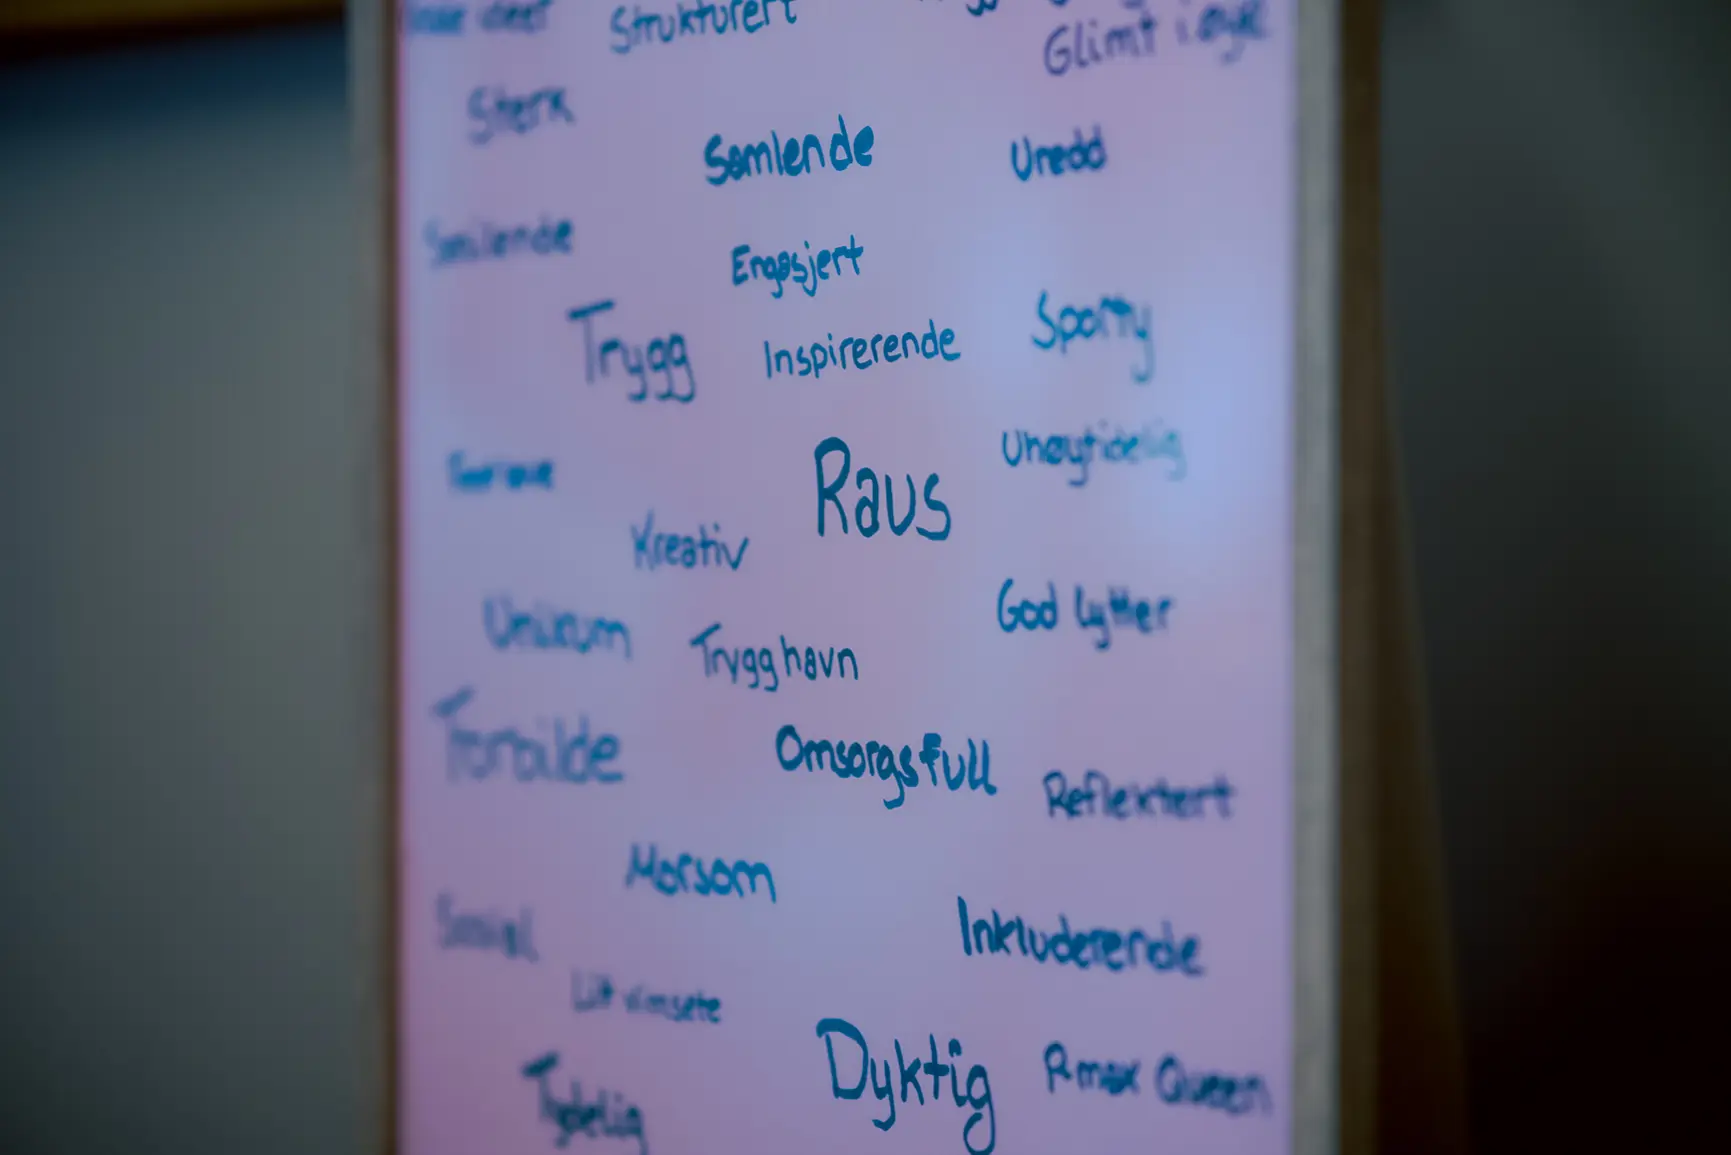 Strukturert
Glimt i øyet
Sterk
Samlende
Uredd
Smilende
Engasjert
Trygg
Inspirerende
Sporty
Uhøytidelig
Raus
Kreativ
God lytter
Unikum
Trygg havn
Toralide
Omsorgsfull
Reflektert
Morsom
Sosial
Inkluderende
Litt vimsete
Dyktig
Rmax Queen
Tydelig